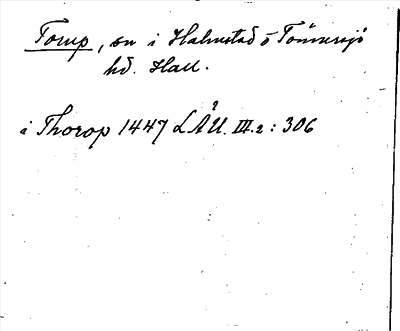 Torup, sn i Halmstad o Tönnersjö
hd. Hall.
i Thorop 1447 LÅU. III.2: 306